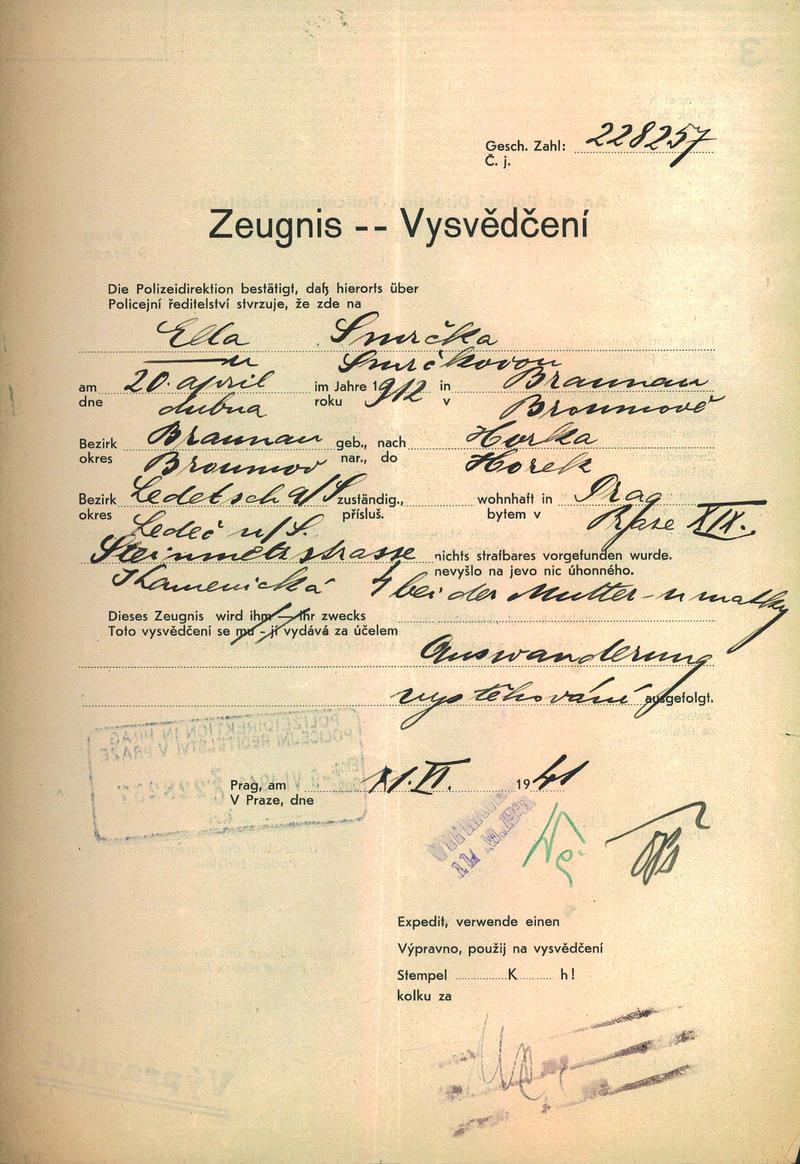 Gesch. Zahl: 228257
Č. j.
Zeugnis -- Vysvědčení
Die Polizeidirektion bestätigt, daß hierorts über
Policejní ředitelství stvrzuje, že zde na
Ella Smrčka
Smrčkovou
am 20. april im Jahre 1912 in Braunau
dne dubna roku v Broumově
Bezirk Braunau geb., nach Horka
okres Broumov nar., do Horek
Bezirk Ledetsch a/S zuständig., wohnhaft in Prag
okres Ledeč n/S. přísluš. bytem v Praze XIX.
Steinmetzstrasse nichts strafbares vorgefunden wurde.
nevyšlo na jevo nic úhonného.
Kamenická 4 bei der Mutter - u matky
Dieses Zeugnis wird ihm — ihr zwecks
Toto vysvědčení se mu - jí vydává za účelem
Auswanderung
vystěhování ausgefolgt.
POLIZEIDIREKTION IN PRAG
POLICEJNÍ ŘEDITELSTVÍ V PRAZE
Prag, am 11. VI. 1941
V Praze, dne
Expedit, verwende einen
Výpravno, použij na vysvědčení
Stempel K h!
kolku za
Výpravno!